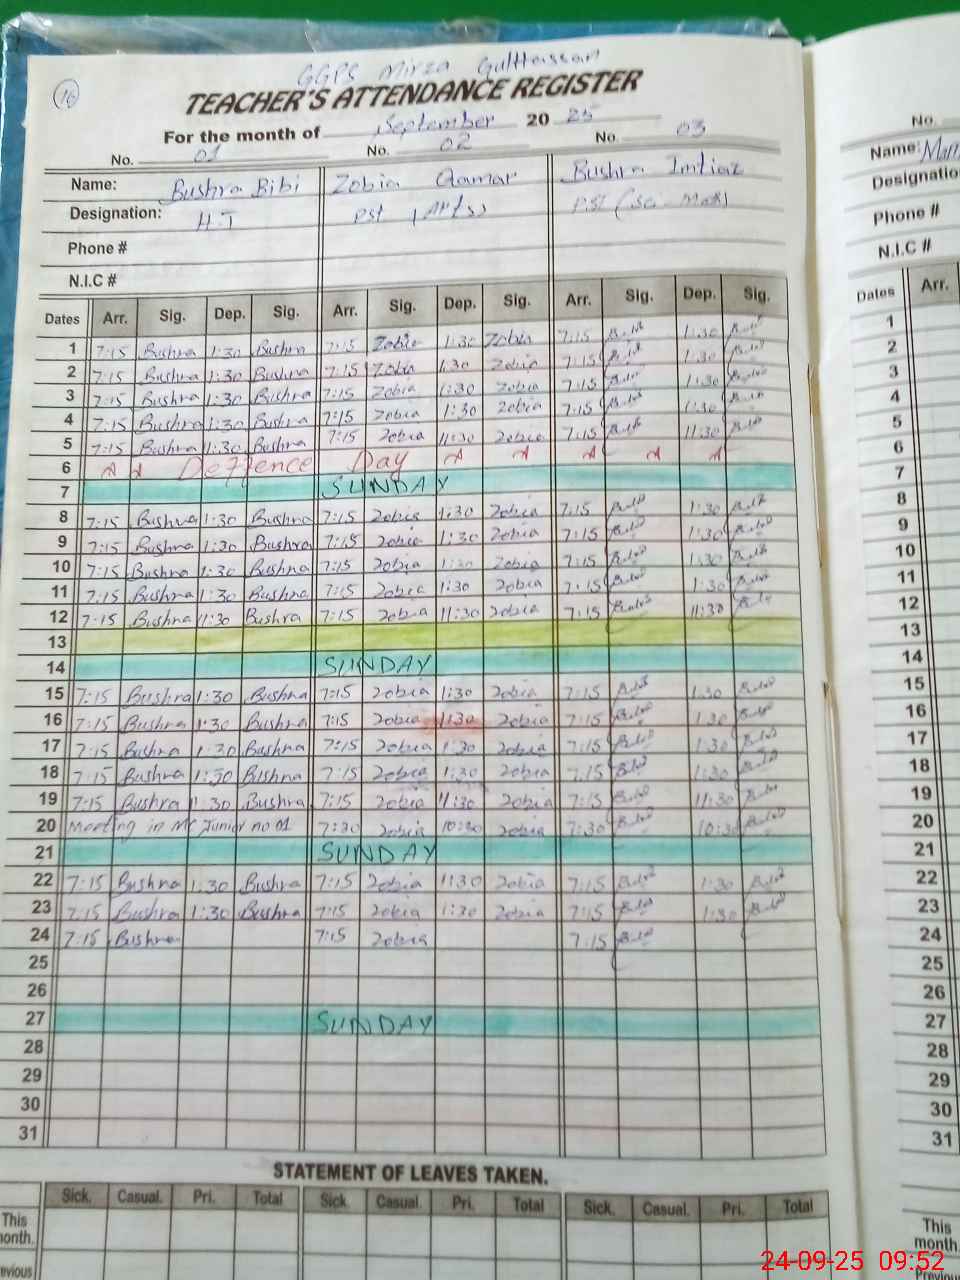 GGPS Mirza GulHassan
16
TEACHER'S ATTENDANCE REGISTER
For the month of September 20 25
No. 01 No. 02 No. 03
Name: Bushra Bibi Zobia Qamar Bushra Imtiaz
Designation: H.T PST (Arts) PST (Sci-Math)
Phone #
N.I.C #
Dates Arr. Sig. Dep. Sig. Arr. Sig. Dep. Sig. Arr. Sig. Dep. Sig.
1 7:15 Bushra 1:30 Bushra 7:15 Zobia 1:30 Zobia 7:15 1:30
2 7:15 Bushra 1:30 Bushra 7:15 Zobia 1:30 Zobia 7:15 1:30
3 7:15 Bushra 1:30 Bushra 7:15 Zobia 1:30 Zobia 7:15 1:30
4 7:15 Bushra 1:30 Bushra 7:15 Zobia 1:30 Zobia 7:15 1:30
5 7:15 Bushra 11:30 Bushra 7:15 Zobia 11:30 Zobia 7:15 11:30
6 Deffence Day
7 SUNDAY
8 7:15 Bushra 1:30 Bushra 7:15 Zobia 1:30 Zobia 7:15 1:30
9 7:15 Bushra 1:30 Bushra 7:15 Zobia 1:30 Zobia 7:15 1:30
10 7:15 Bushra 1:30 Bushra 7:15 Zobia 1:30 Zobia 7:15 1:30
11 7:15 Bushra 1:30 Bushra 7:15 Zobia 1:30 Zobia 7:15 1:30
12 7:15 Bushra 11:30 Bushra 7:15 Zobia 11:30 Zobia 7:15 11:30
13
14 SUNDAY
15 7:15 Bushra 1:30 Bushra 7:15 Zobia 1:30 Zobia 7:15 1:30
16 7:15 Bushra 1:30 Bushra 7:15 Zobia 1:30 Zobia 7:15 1:30
17 7:15 Bushra 1:30 Bushra 7:15 Zobia 1:30 Zobia 7:15 1:30
18 7:15 Bushra 1:30 Bushra 7:15 Zobia 1:30 Zobia 7:15 1:30
19 7:15 Bushra 11:30 Bushra 7:15 Zobia 11:30 Zobia 7:15 11:30
20 Meeting in MC Junior no 01 7:30 Zobia 10:30 Zobia 7:30 10:30
21 SUNDAY
22 7:15 Bushra 1:30 Bushra 7:15 Zobia 1:30 Zobia 7:15 1:30
23 7:15 Bushra 1:30 Bushra 7:15 Zobia 1:30 Zobia 7:15 1:30
24 7:15 Bushra 7:15 Zobia 7:15
25
26
27 SUNDAY
28
29
30
31
STATEMENT OF LEAVES TAKEN.
Sick. Casual. Pri. Total Sick. Casual. Pri. Total Sick. Casual. Pri. Total
This
month.
No.
Name:
Designatio
Phone #
N.I.C #
Dates Arr.
1
2
3
4
5
6
7
8
9
10
11
12
13
14
15
16
17
18
19
20
21
22
23
24
25
26
27
28
29
30
31
This
month.
24-09-25 09:52